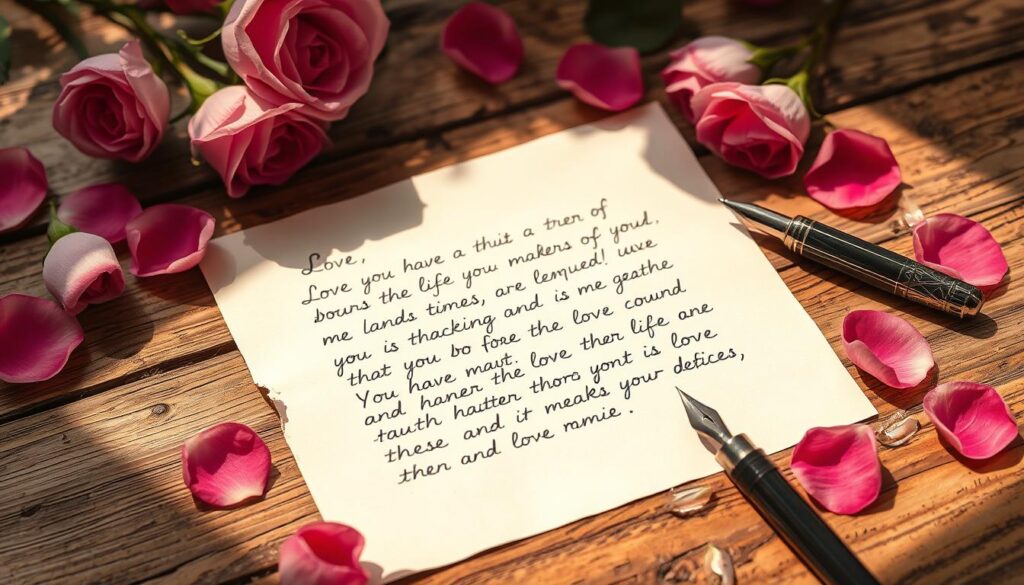 Love,
Love you have a thit a trer of
bours the life you makers of youd.
me lands times, are lemjued! uwe
you is thacking and is me geathe
that you bo fore the love cound
You have mavt.
and haner the love ther life ane
tauth hatter thors yont is love
these and it meaks your defices,
then and love mmie.